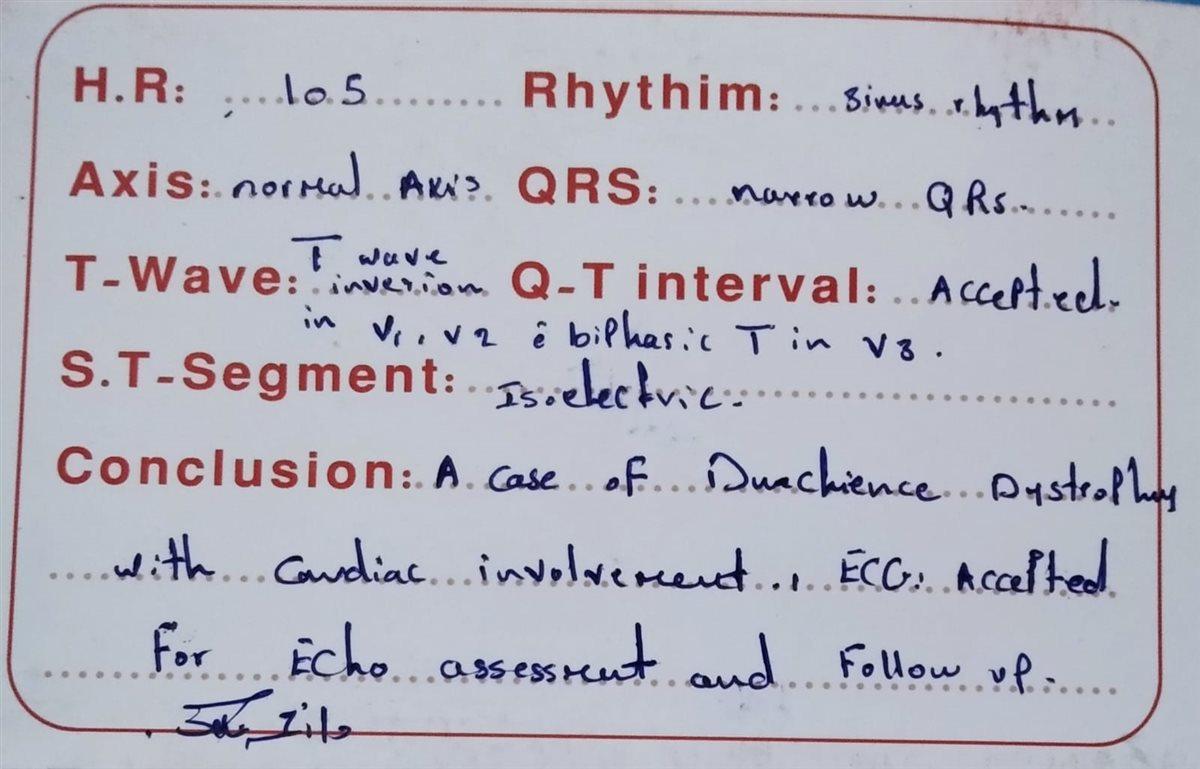 H.R: 105 Rhythim: sinus rhythm
Axis: normal Axis QRS: narrow QRs.
T-Wave: T wave inverion Q-T interval: Accepted.
in V1, V2 c̄ biphasic T in V3.
S.T-Segment: Isoelectric.
Conclusion: A case of Duachience Dystrophy
with Cardiac involvement, ECG: Accepted
For Echo assessment and Follow up.